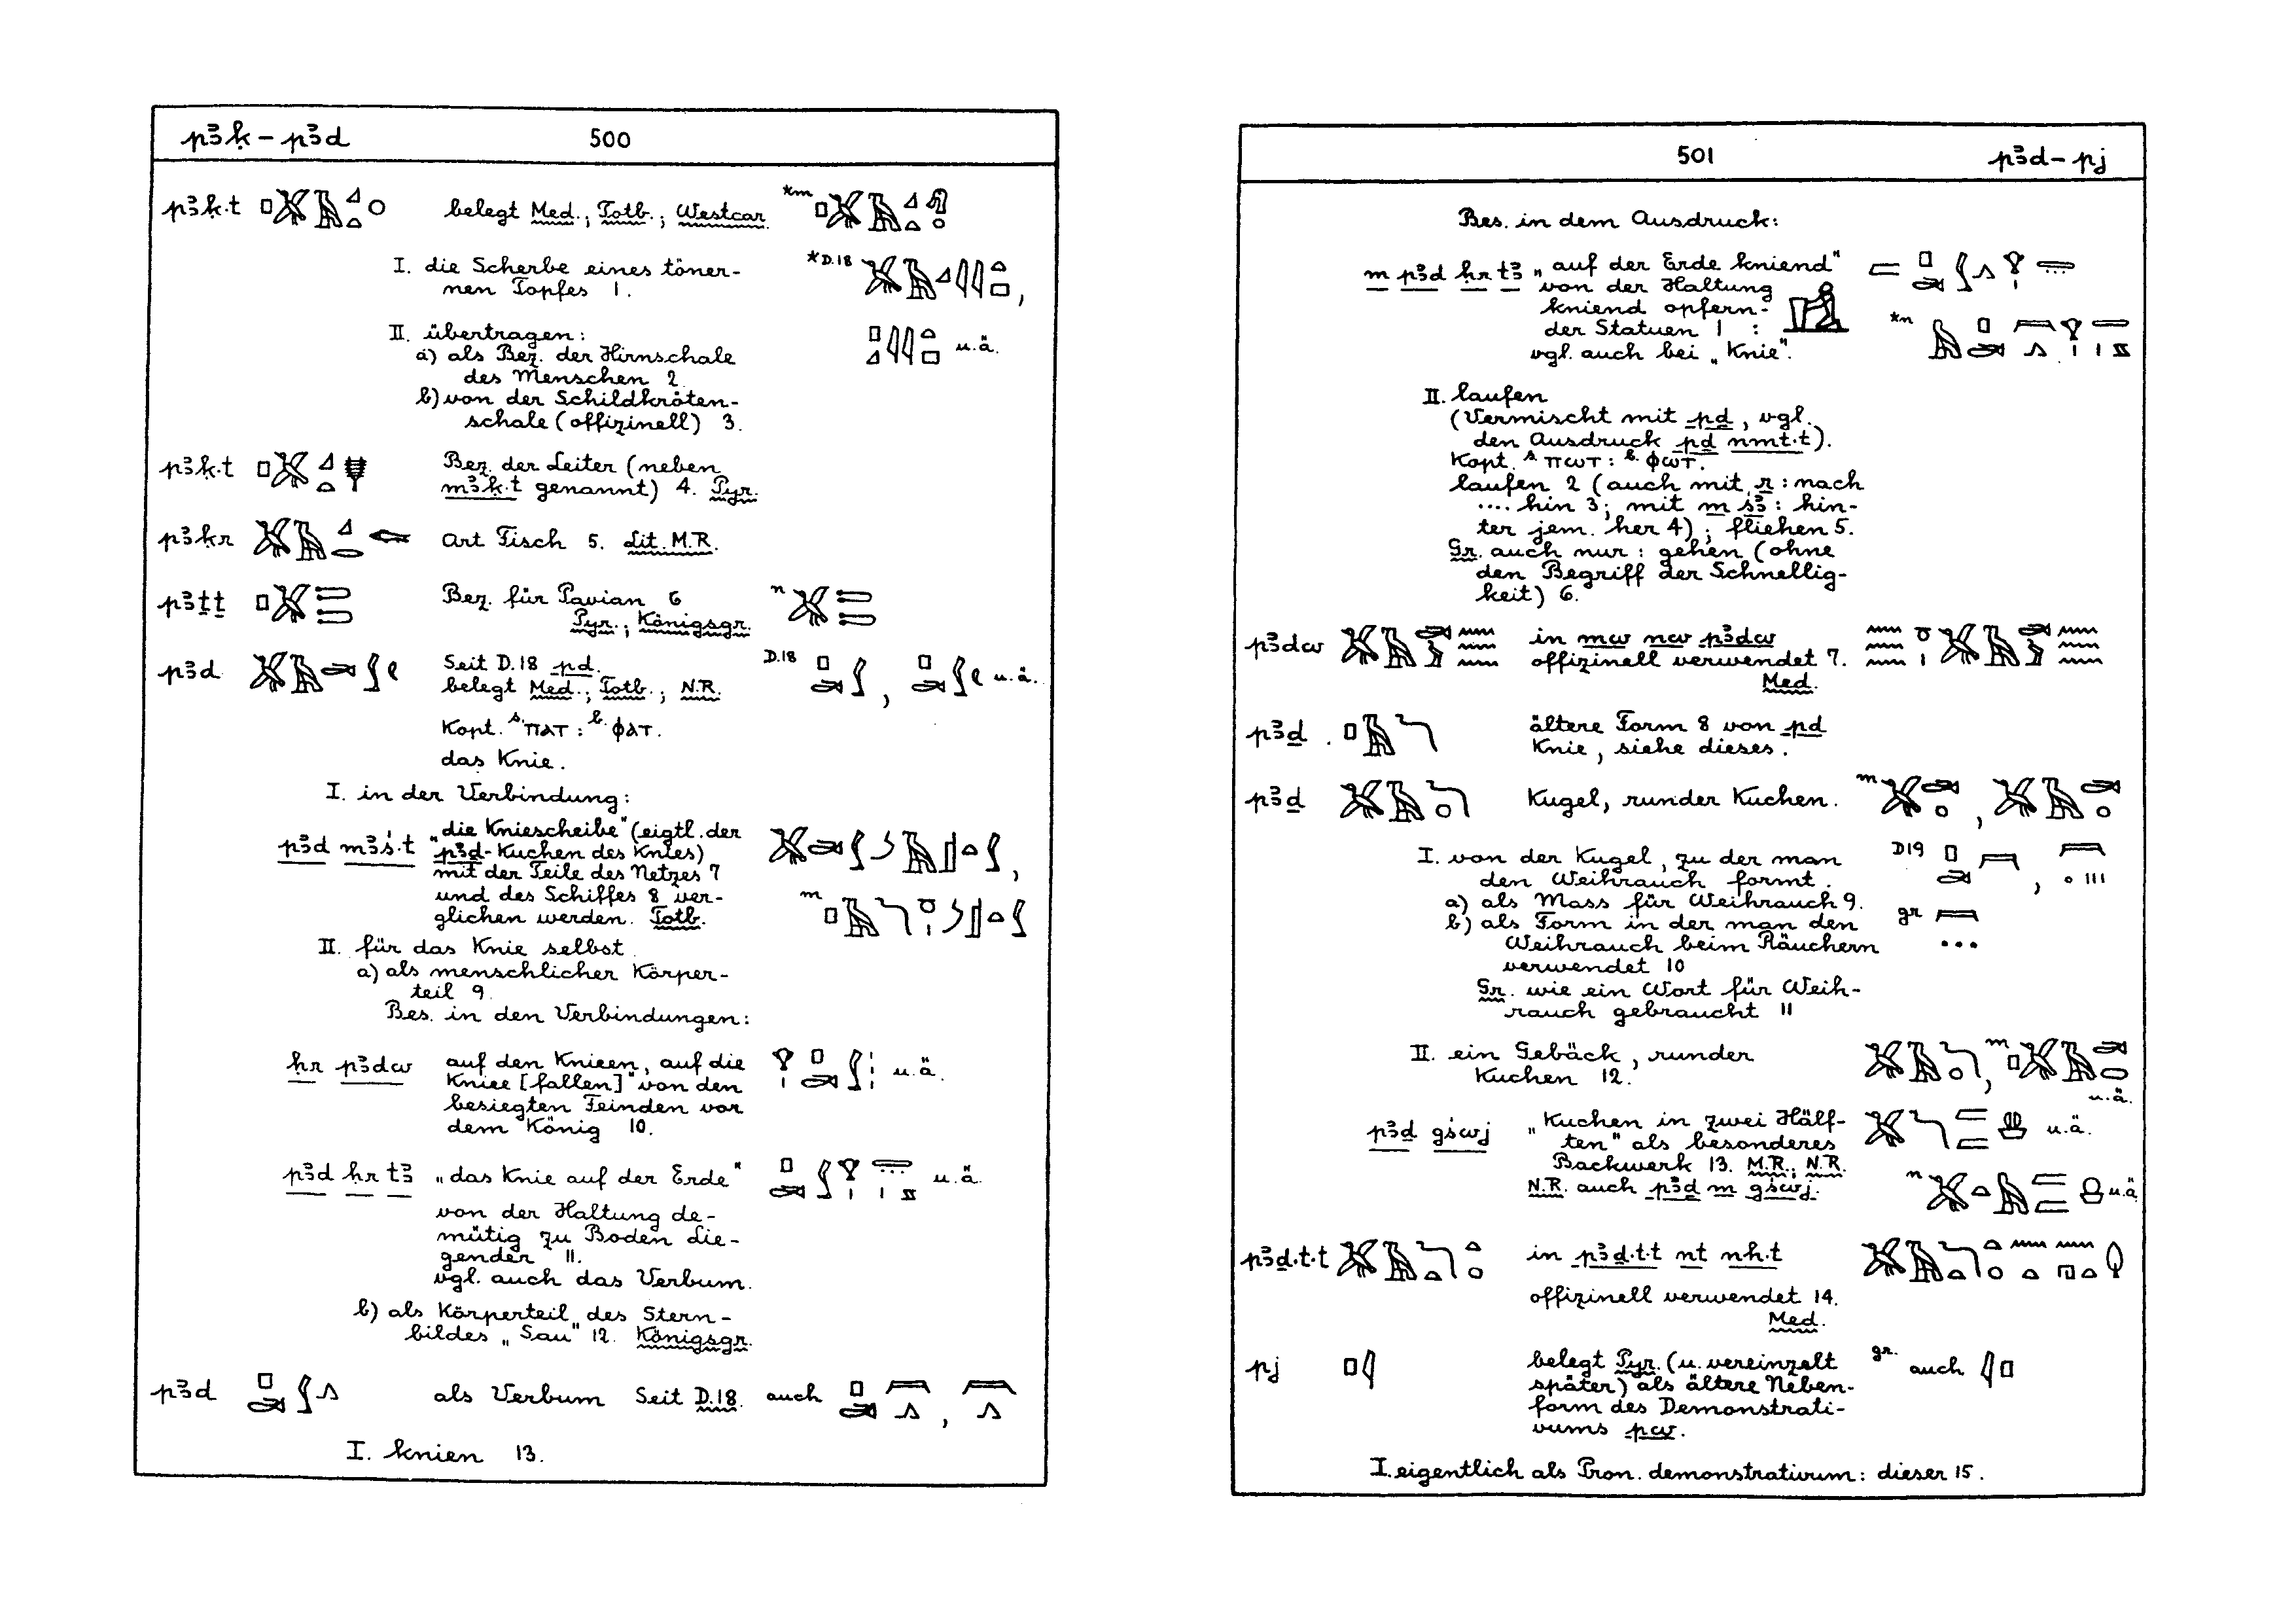 pꜣḳ – pꜣd 500
pꜣḳ·t belegt Med.; Totb.; Westcar. *m
I. die Scherbe eines töner- *D.18
nen Topfes 1. ,
II. übertragen:
a) als Bez. der Hirnschale u.ä.
des Menschen 2.
b) von der Schildkröten-
schale (offizinell) 3.
pꜣḳ·t Bez. der Leiter (neben
mꜣḳ·t genannt) 4. Pyr.
pꜣḳr Art Fisch 5. Lit. M.R.
pꜣṯṯ Bez. für Pavian 6 n
Pyr.; Königsgr.
pꜣd Seit D.18 pd. D.18 , u.ä.
belegt Med.; Totb.; N.R.
Kopt. s. ⲡⲁⲧ : b. ⲫⲁⲧ.
das Knie.
I. in der Verbindung:
pꜣd mꜣś·t „die Kniescheibe“ (eigtl. der
pꜣd-Kuchen des Knies) ,
mit der Teile des Netzes 7
und des Schiffes 8 ver- m
glichen werden. Totb.
II. für das Knie selbst
a) als menschlicher Körper-
teil 9.
Bes. in den Verbindungen:
ḥr pꜣdw auf den Knieen, auf die u.ä.
Kniee [fallen]“ von den
besiegten Feinden vor
dem König 10.
pꜣd ḥr tꜣ „das Knie auf der Erde“ u.ä.
von der Haltung de-
mütig zu Boden Lie-
gender 11.
vgl. auch das Verbum.
b) als Körperteil des Stern-
bildes „Sau“ 12. Königsgr.
pꜣd als Verbum Seit D.18. auch ,
I. knien 13.
501 pꜣd – pj
Bes. in dem Ausdruck:
m pꜣd ḥr tꜣ „auf der Erde kniend“
von der Haltung
kniend opfern-
der Statuen 1 : *n
vgl. auch bei „Knie“.
II. laufen
(Vermischt mit pḏ, vgl.
den Ausdruck pḏ nmt·t).
Kopt. s. ⲡⲱⲧ : b. ⲫⲱⲧ.
laufen 2 (auch mit r : nach
.... hin 3; mit m sꜣ : hin-
ter jem. her 4); fliehen 5.
Gr. auch nur : gehen (ohne
den Begriff der Schnellig-
keit) 6.
pꜣdw in mw nw pꜣdw
offizinell verwendet 7.
Med.
pꜣḏ . ältere Form 8 von pd
Knie, siehe dieses.
pꜣḏ Kugel, runder Kuchen. m ,
I. von der Kugel, zu der man D19
den Weihrauch formt. ,
a) als Mass für Weihrauch 9.
b) als Form in der man den gr
Weihrauch beim Räuchern
verwendet 10
Gr. wie ein Wort für Weih-
rauch gebraucht 11
II. ein Gebäck, runder , m
Kuchen 12. u.ä.
pꜣḏ gśwj „Kuchen in zwei Hälf- u.ä.
ten“ als besonderes
Backwerk 13. M.R.; N.R.
N.R. auch pꜣḏ m gśwj. n u.ä.
pꜣḏ·t·t in pꜣḏ·t·t nt nh·t
offizinell verwendet 14.
Med.
pj belegt Pyr. (u. vereinzelt gr. auch
später) als ältere Neben-
form des Demonstrati-
vums pw.
I. eigentlich als Pron. demonstrativum: dieser 15.